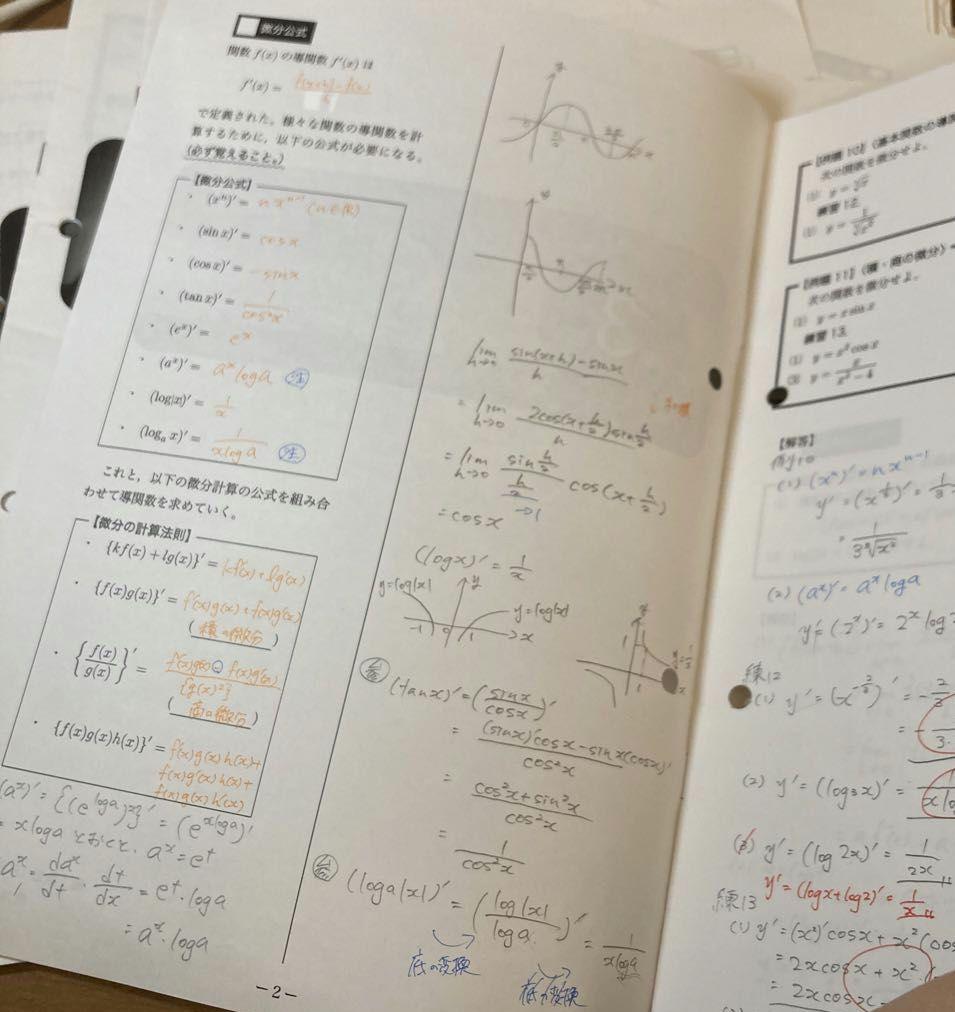 微分公式
関数 f(x) の導関数 f'(x) は
f'(x) = f(x+h)-f(x)/h
で定義された。様々な関数の導関数を計
算するために、以下の公式が必要になる。
(必ず覚えること。)
【微分公式】
・ (xⁿ)' = nxⁿ⁻¹
・ (sin x)' = cosx
・ (cos x)' = -sinx
・ (tan x)' = 1/cos²x
・ (eˣ)' = eˣ
・ (aˣ)' = aˣloga 注
・ (log|x|)' = 1/x
・ (logₐ x)' = 1/xloga 注
これと、以下の微分計算の公式を組み合
わせて導関数を求めていく。
【微分の計算法則】
・ {kf(x) + lg(x)}' = kf'(x)+lg'(x)
・ {f(x)g(x)}' = f'(x)g(x)+f(x)g'(x)
(積の微分)
・ {f(x)/g(x)}' = f'(x)g(x)-f(x)g'(x)/{g(x)²}
(商の微分)
・ {f(x)g(x)h(x)}' = f'(x)g(x)h(x)+
f(x)g'(x)h(x)+
f(x)g(x)h'(x)
(aˣ)' = {(e^loga)ˣ}' = (e^xloga)'
= xlogaとおくと、aˣ=eᵗ
daˣ/dt・dt/dx = eᵗ・loga
= aˣ・loga
lim h→0 sin(x+h)-sinx/h
= lim h→0 2cos(x+h/2)sin h/2/h
= lim h→0 sin h/2/h/2 cos(x+h/2)
→1
= cosx
(logx)' = 1/x
y=log|x| y
y=log|x|
-1 0 1 x
参
(tanx)' = (sinx/cosx)'
= (sinx)'cosx-sinx(cosx)'/cos²x
= cos²x+sin²x/cos²x
= 1/cos²x
参
(loga|x|)' = (log|x|/loga)' = 1/xloga
底の変換
底の変換
-2-
【例題10】(基本関数の導関
次の関数を微分せよ。
練習12.
【例題11】(積・商の微分)
次の関数を微分せよ。
(1) y = x sin x
練習13.
(1) y = x² cos x
(2) y = x/x²-4
【解答】
例題10
(1) (xⁿ)' = nxⁿ⁻¹
y' = (x^1/3)' = 1/3
= 1/3∛x²
(2) (aˣ)' = aˣloga
y' = (2ˣ)' = 2ˣlog
練12
(2) y' = (log₃x)' =
(3) y' = (log2x)' = 1/2x
y' = (logx+log2)' = 1/x
練13
(1) y' = (x²)'cosx + x²(cos
= 2xcosx + x²
= 2xcosx